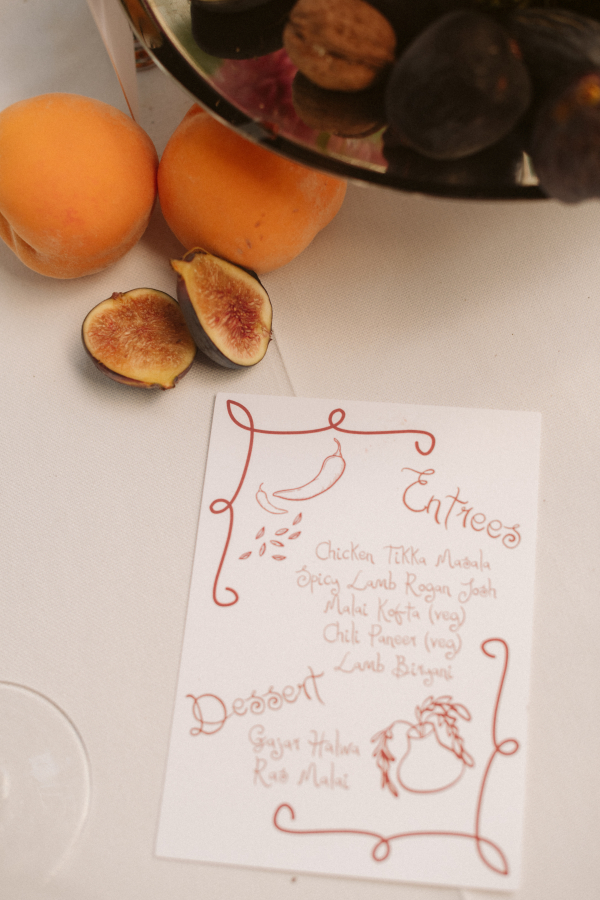 Entrees
Chicken Tikka Masala
Spicy Lamb Rogan Josh
Malai Kofta (veg)
Chili Paneer (veg)
Lamb Biryani
Dessert
Gajar Halwa
Ras Malai